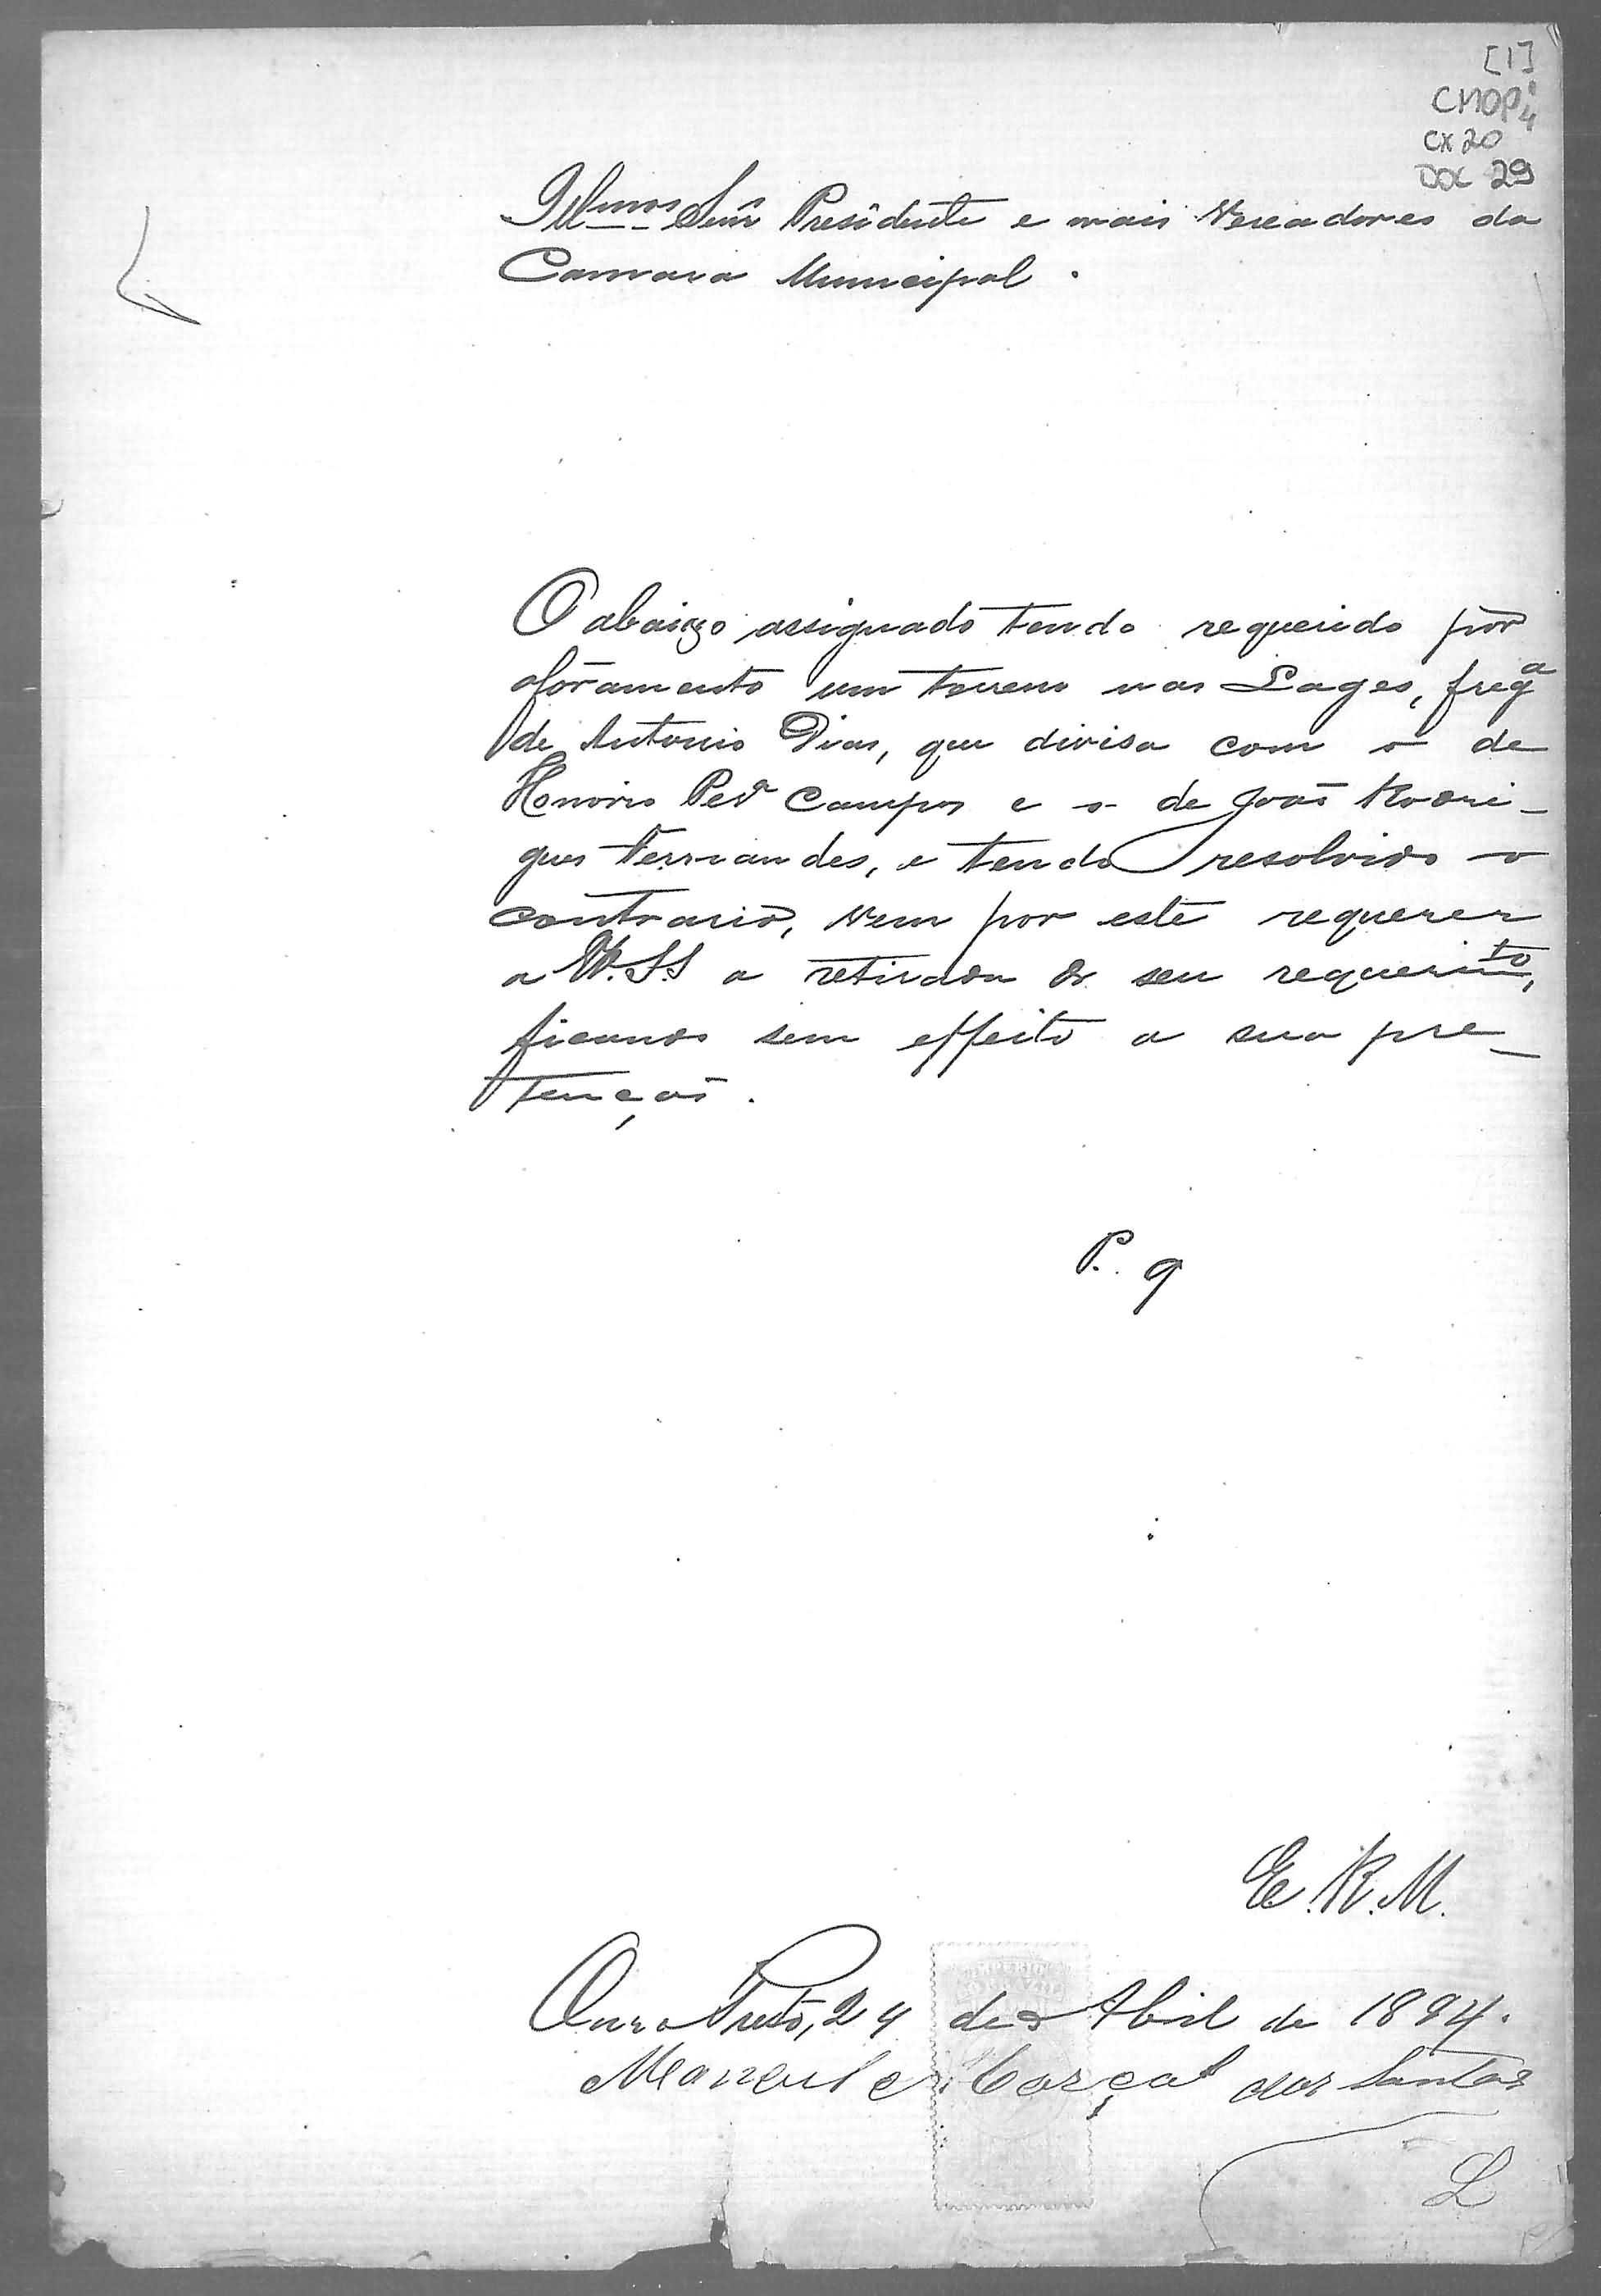 [1]
CMOP
CX 20
DOC 29
Illmos Snr Presidente e mais Vereadores da
Camara Municipal.
O abaixo assignado tendo requerido por
aforamento um terreno nas Lages, fregª
de Antonio Dias, que divisa com o de
Honorio Campos e o de João Rodri-
gues Fernandes, e tendo resolvido o
contrario, vem por este requerer
a V.V. S.S a retirada do seu requerimto,
ficando sem effeito a sua pre-
tenção.
P. q
E. R. M.
Ouro Preto, 24 de Abril de 1894.
Manoel Marçal dos Santos